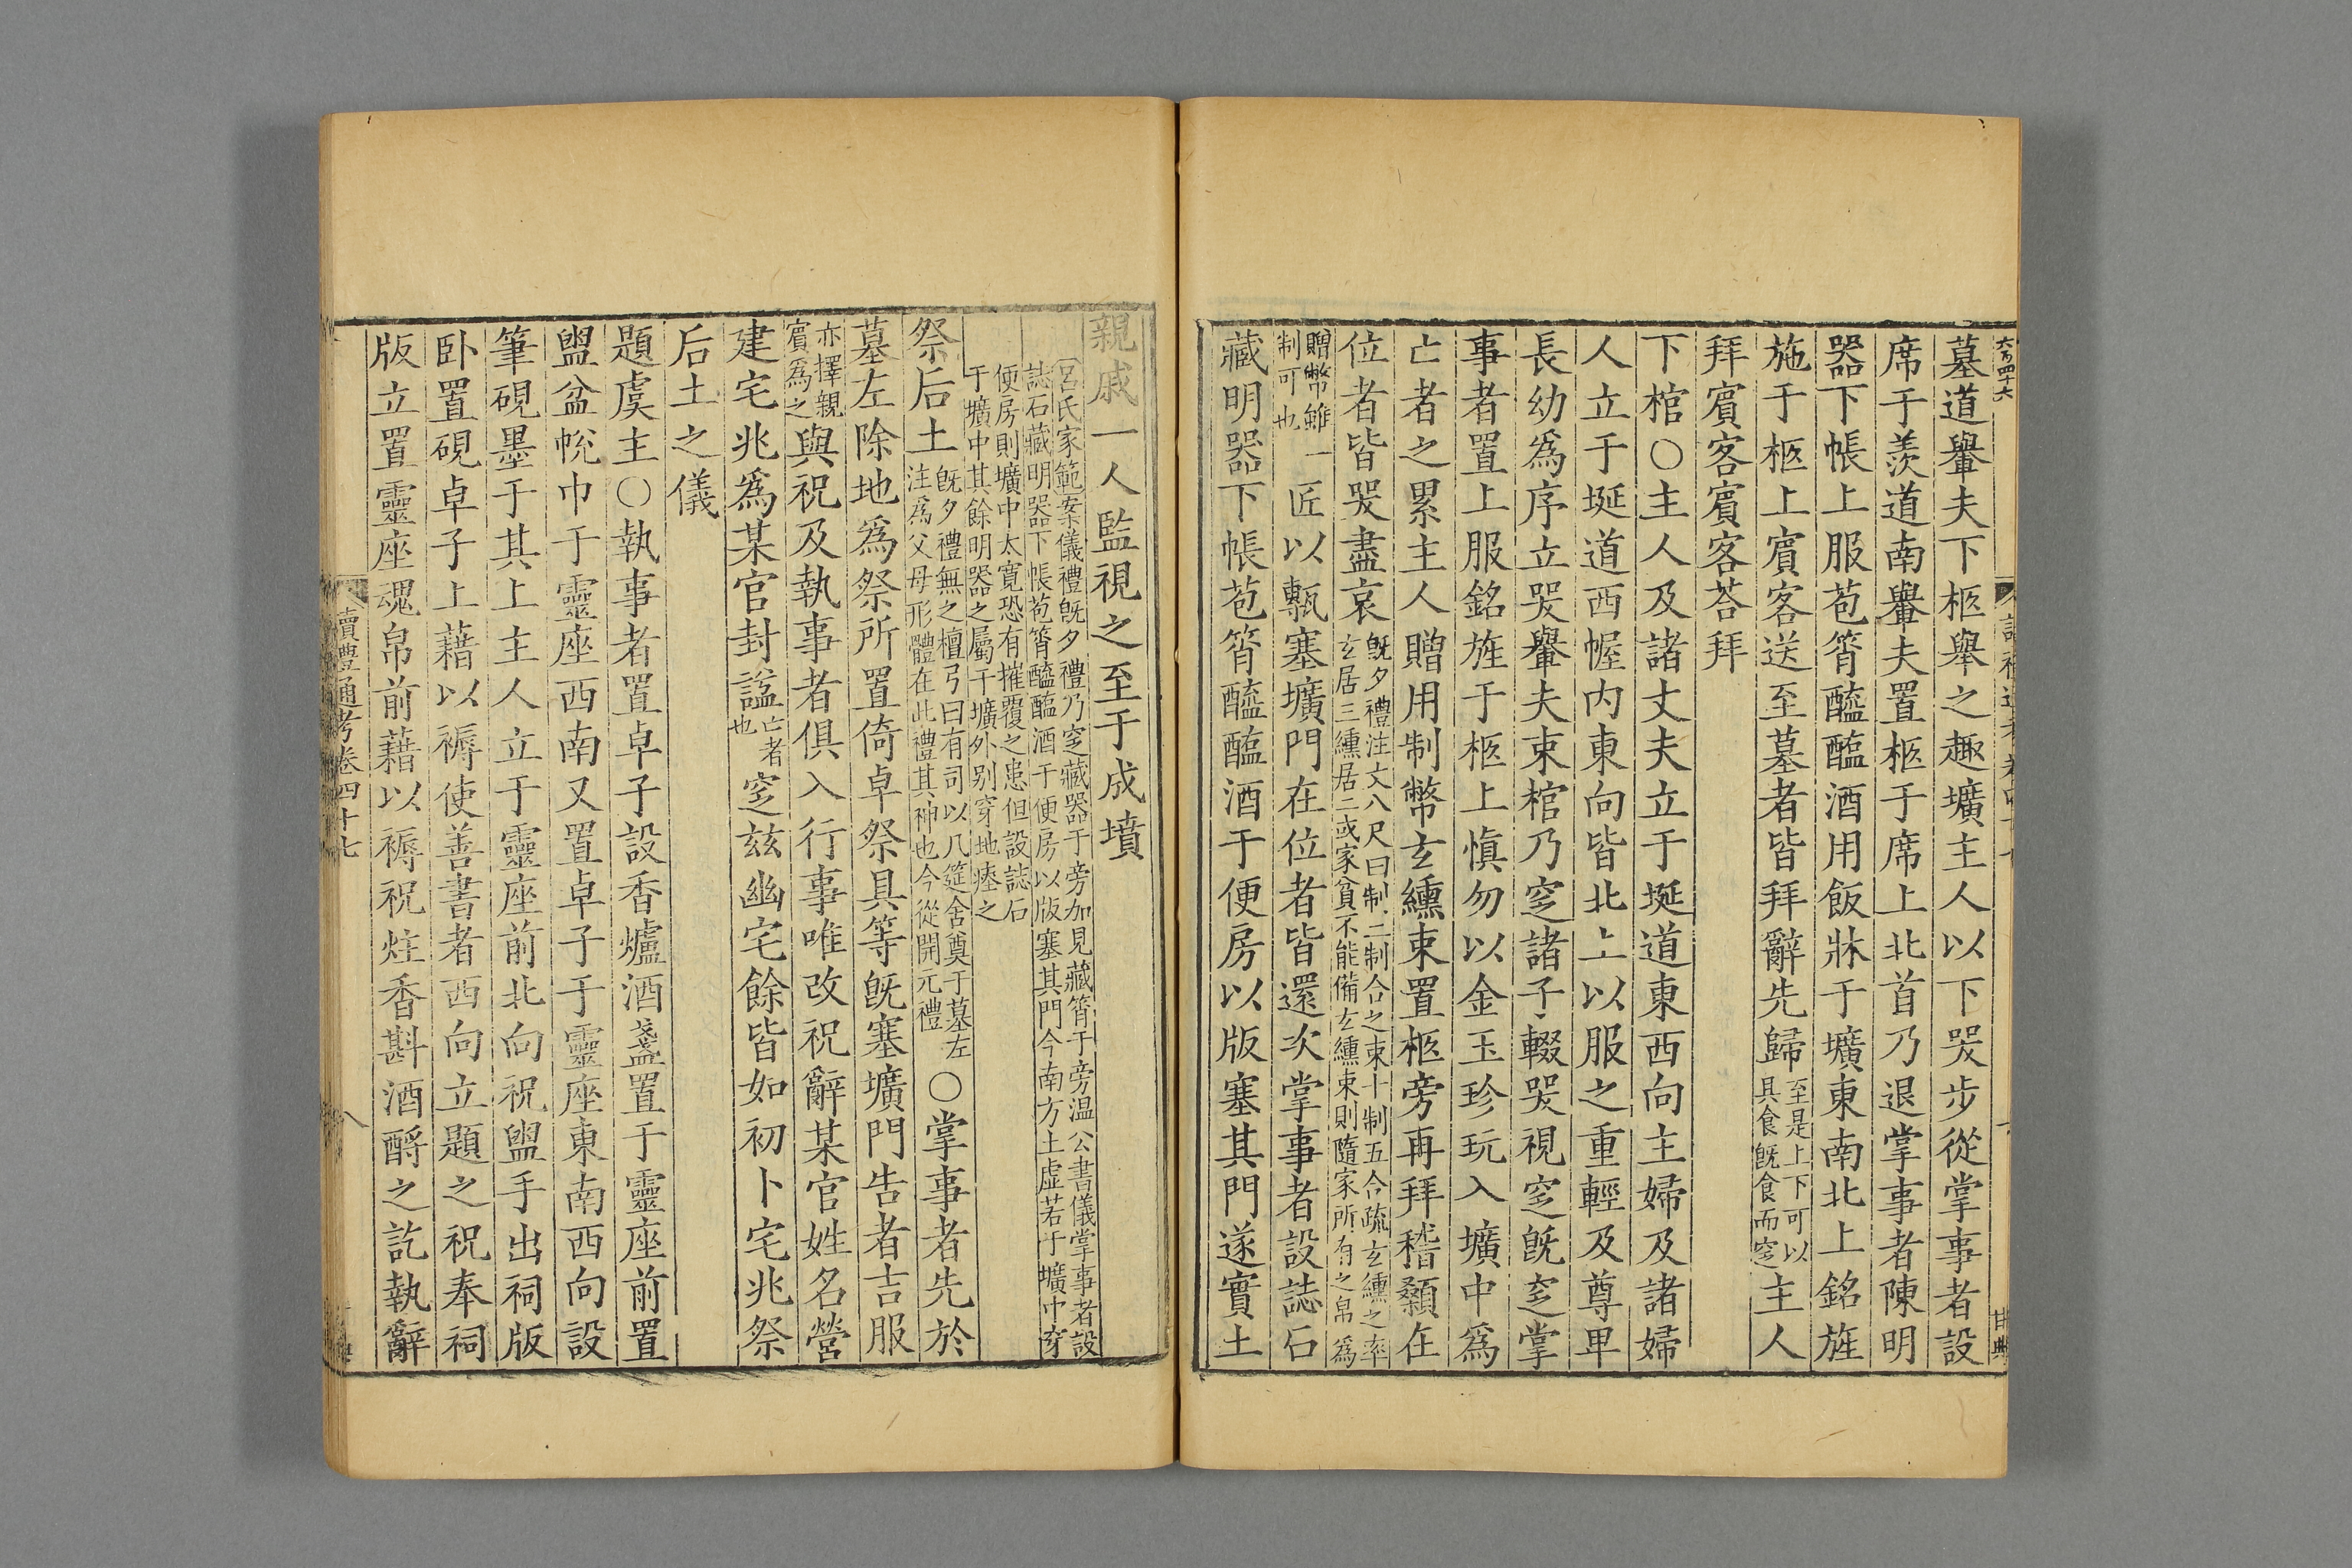 六百四十六
甘典
墓道轝夫下柩舉之趣壙主人以下哭步從掌事者設
席于羨道南轝夫置柩于席上北首乃退掌事者陳明
器下帳上服苞筲醯醢酒用飯牀于壙東南北上銘旌
施于柩上賓客送至墓者皆拜辭先歸至是上下可以具食旣食而窆主人
拜賓客賓客荅拜
下棺○主人及諸丈夫立于埏道東西向主婦及諸婦
人立于埏道西幄内東向皆北上以服之重輕及尊卑
長幼爲序立哭轝夫束棺乃窆諸子輟哭視窆旣窆掌
事者置上服銘旌于柩上愼勿以金玉珍玩入壙中爲
亡者之累主人贈用制幣玄纁束置柩旁再拜稽顙在
位者皆哭盡哀旣夕禮注丈八尺曰制二制合之束十制五合疏玄纁之率玄居三纁居二或家貧不能備玄纁束則隨家所有之帛爲
贈幣雖一制可也匠以甎塞壙門在位者皆還次掌事者設誌石
藏明器下帳苞筲醯醢酒于便房以版塞其門遂實土
親戚一人監視之至于成墳
呂氏家範案儀禮旣夕禮乃窆藏器于旁加見藏筲于旁温公書儀掌事者設
誌石藏明器下帳苞筲醯醢酒于便房以版塞其門今南方土虛若于壙中穿
便房則壙中太寛恐有摧覆之患但設誌石
于壙中其餘明器之屬于壙外别穿地瘞之
祭后土旣夕禮無之檀弓曰有司以几筵舍奠于墓左注爲父母形體在此禮其神也今從開元禮○掌事者先於
墓左除地爲祭所置倚卓祭具等旣塞壙門告者吉服
亦擇親賓爲之與祝及執事者俱入行事唯改祝辭某官姓名營
建宅兆爲某官封諡亡者也窆玆幽宅餘皆如初卜宅兆祭
后土之儀
題虞主○執事者置卓子設香爐酒盞置于靈座前置
盥盆帨巾于靈座西南又置卓子于靈座東南西向設
筆硯墨于其上主人立于靈座前北向祝盥手出祠版
卧置硯卓子上藉以褥使善書者西向立題之祝奉祠
版立置靈座魂帛前藉以褥祝炷香斟酒酹之訖執辭
讀禮通考卷四十七
八